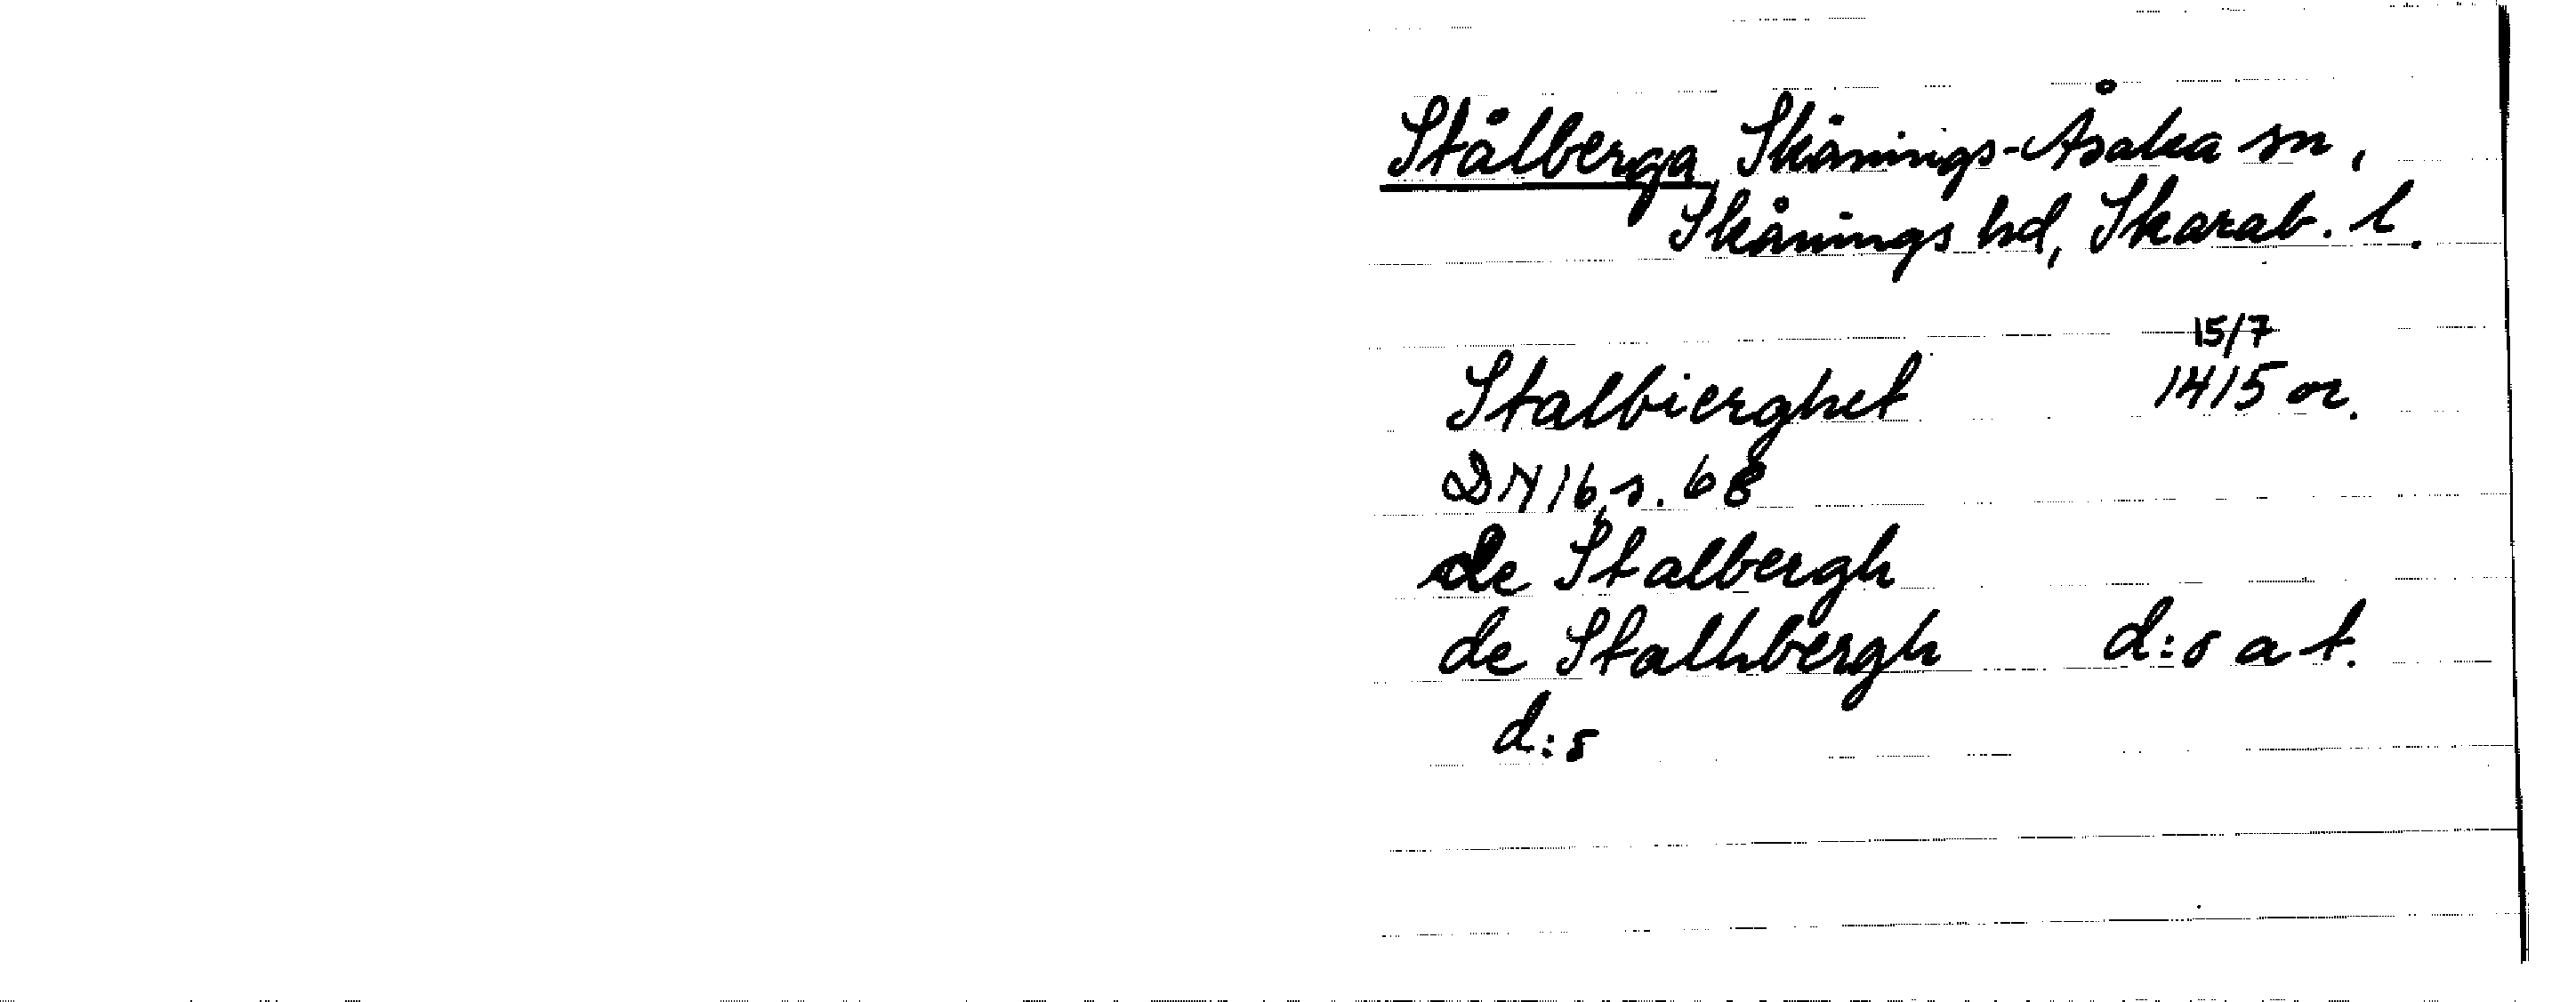 Stålberga, Skånings-Åsaka sn,
Skånings hd, Skarab. l.
15/7
Stalbierghet 1415 or.
DN 16, s. 68
de Stalbergh
de Stalhbergh d:o a t.
d:o